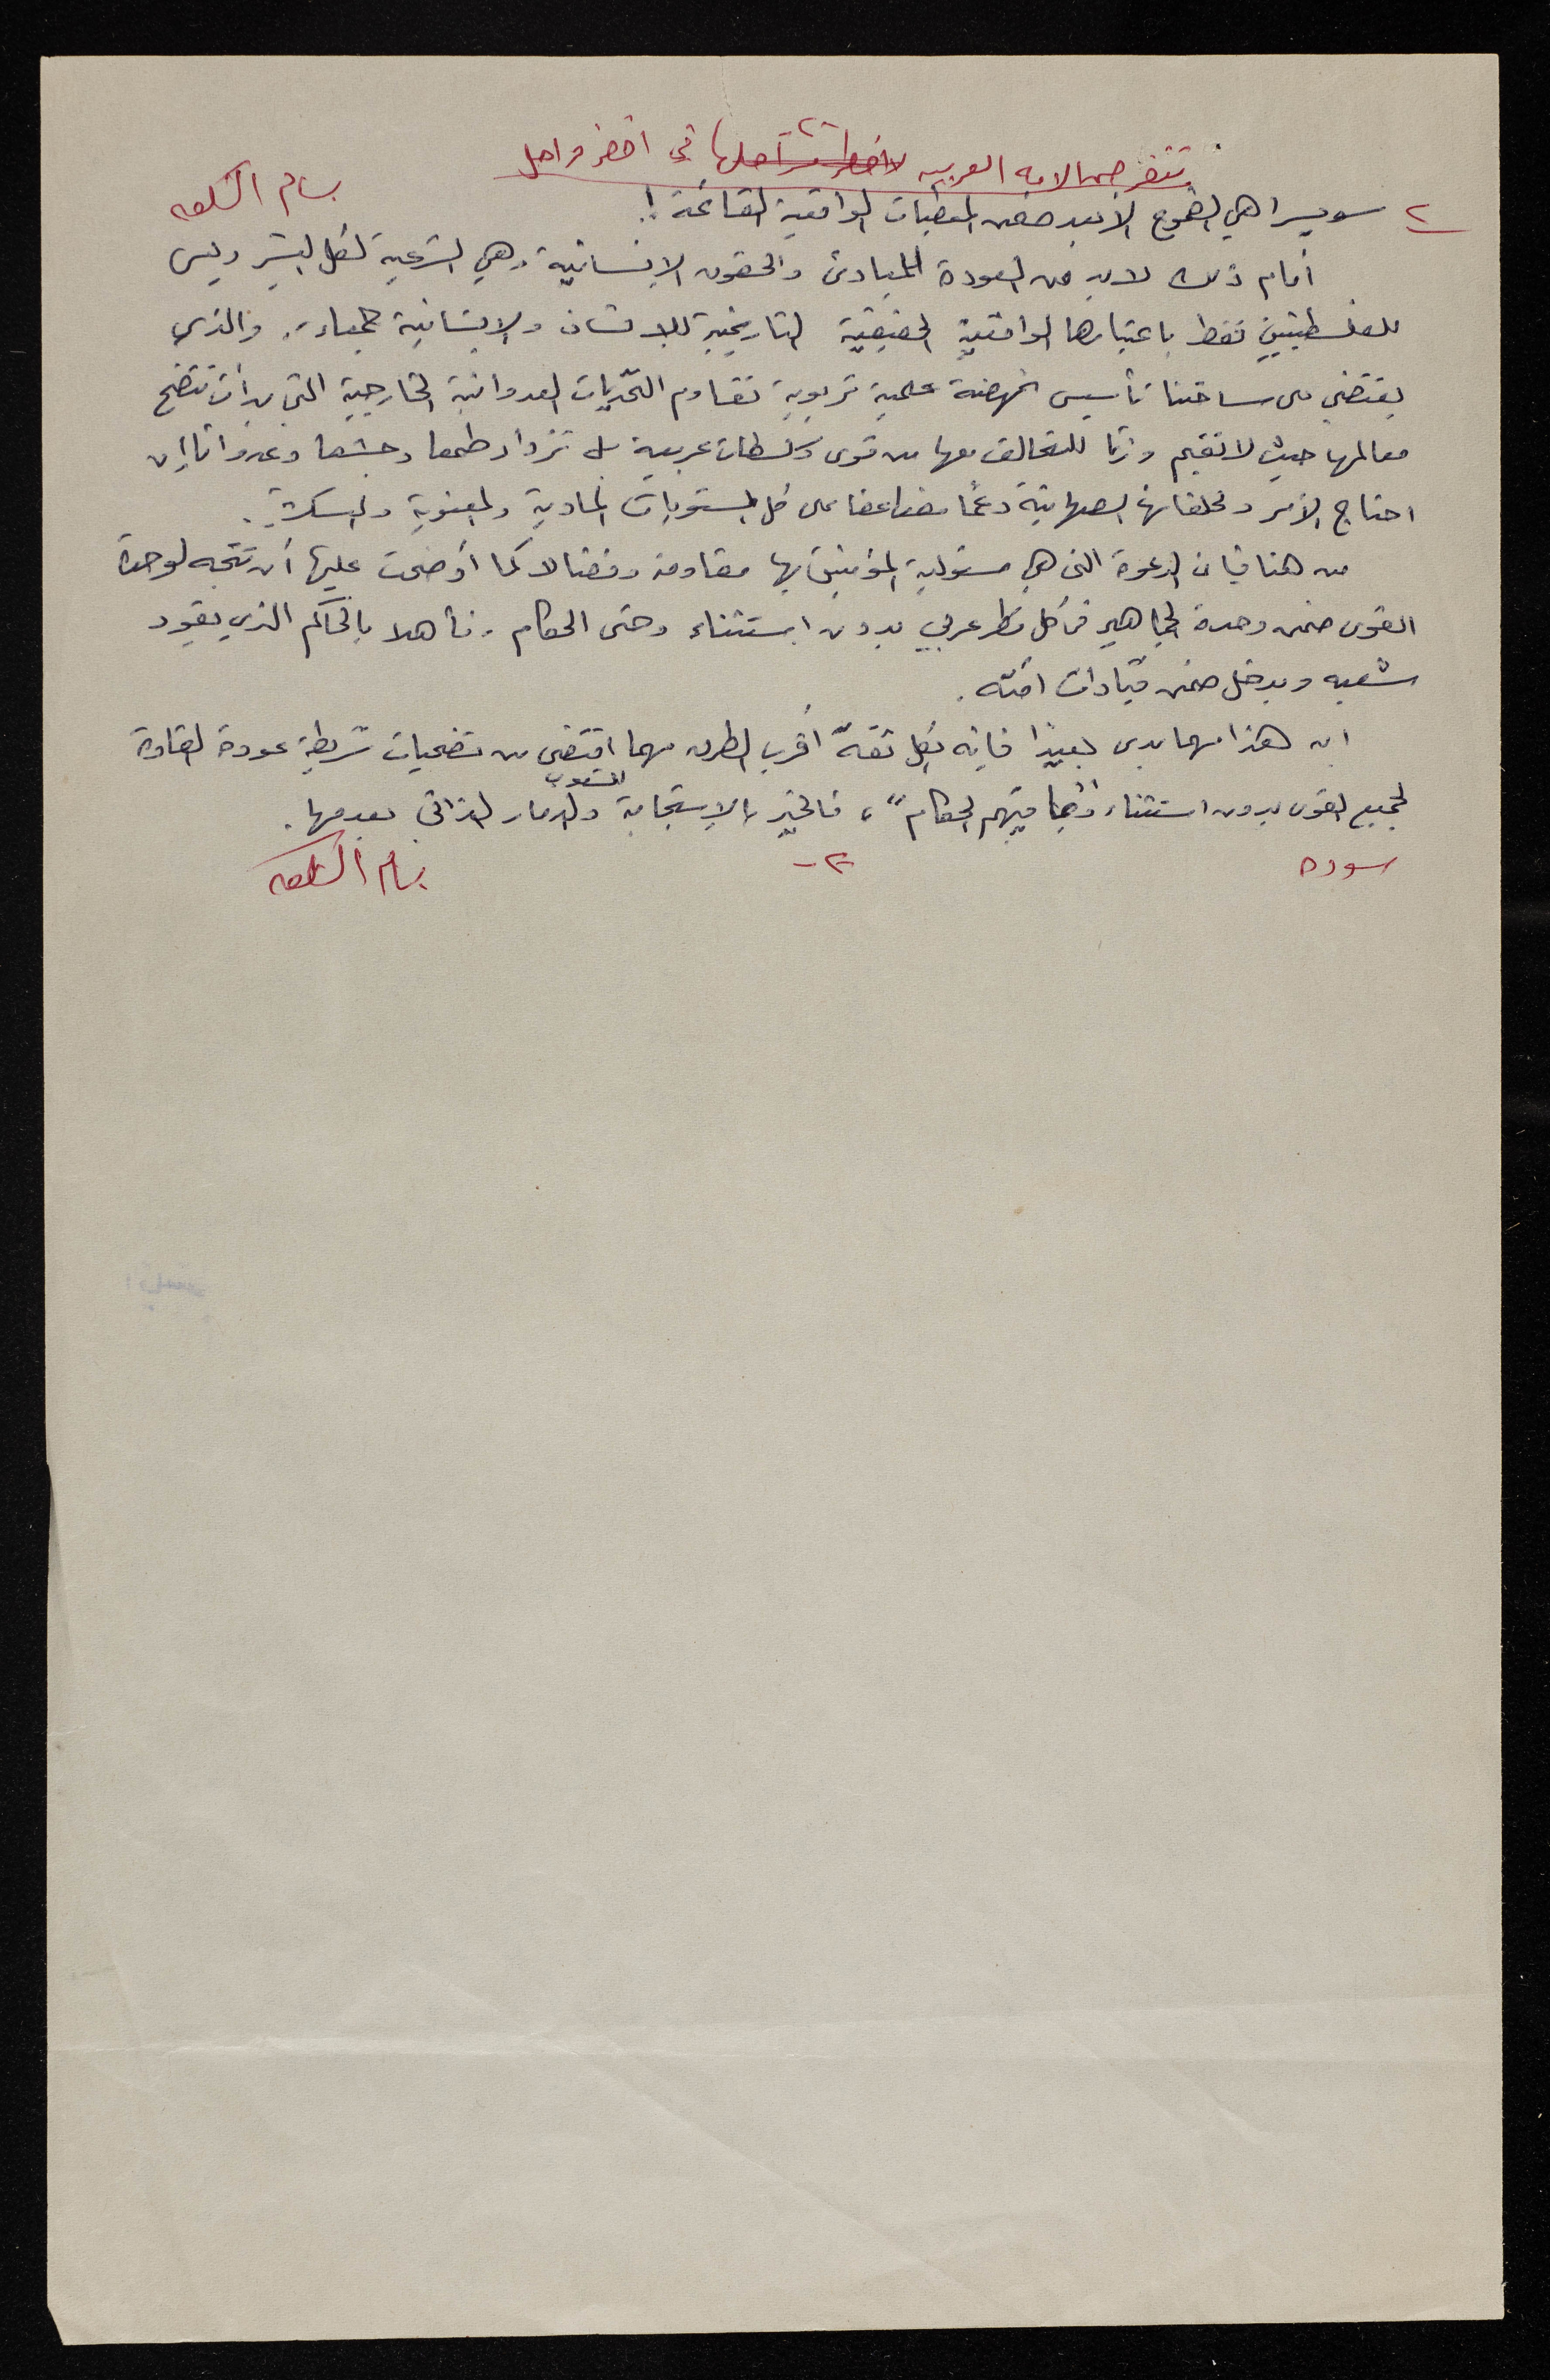 -٢-
تتفرجن الامه العربيه في اخطر مراحل
بسام الشكعه
٢ سويسرا هي الطموح الأبعد ضمن المعطيات الواقعية القائمة !.
أمام ذلك لابد من العودة للمبادئ والحقوق الإنسانية، وهي الشرعية لكل البشر وليس
للفلسطينيين فقط باعتبارها الواقعية الحقيقية التاريخية للإنسان والإنسانية جمعاء، والذي
يقتضي على ساحتنا تأسيس نهضة علمية تربوية تقاوم التحديات العدوانية الخارجية التي بدأت تتضح
معالمها حيث لا تقيم وزنًا للتحالف معها من قوى وسلطات عربية بل تزداد طمعا وجشعا وعدوانا إن
احتاج الأمر وحلفائها الصهاينة دعمًا مضاعفا على كل المستويات المادية والمعنوية والعسكرية.
من هنا فإن الدعوة التي هي مسئولية المؤمنين بها مقاومة ونضالا كما أوضحت عليها أن تتجه لوحدة
القوى ضمن وحدة الجماهير في كل قطر عربي بدون استثناء وحتى الحكام، فأهلا بالحاكم الذي يقود
شعبه ويدخل ضمن قيادات أمته.
إن هذا مهما بدى بعيدًا فإنه بكل ثقة أقرب الطرق مهما اقتضى من تضحيات شريطة عودة القادة
لجميع القوى بدون استثناء "بما فيهم الحكام"، فالخير بالاستجابة للشعوب والدمار الذاتي بعدمها.
سوده
-٢-
بسام الشكعه